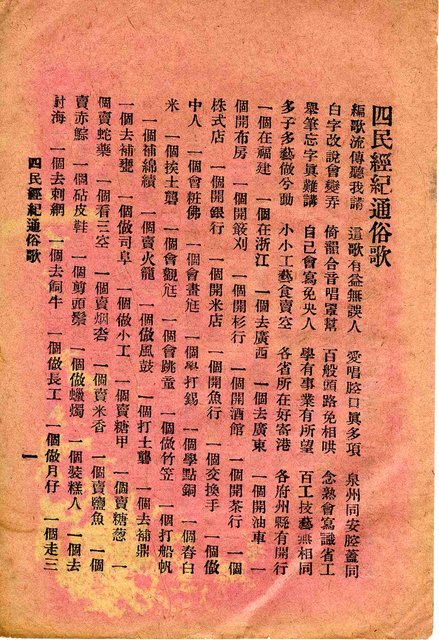 四民經紀通俗歌
編歌流傳聽我請 這歌有益無誤人 愛唱腔口眞多項 泉州同安腔蓋同
白字改說會變弄 倚韻合音唱罩幫 百般頭路免相哄 念熟會寫識省工
舉筆忘字眞難講 自己會寫免央人 學有事業有所望 百工技藝無相同
多子多藝做兮動 小小工藝食賣空 各省所在好寄港 各府州縣有開行
一個在福建 一個在浙江 一個去廣西 一個去廣東 一個開油車 一
個開布房 一個開簽刈 一個開杉行 一個開酒館 一個開茶行 一個
株式店 一個開銀行 一個開米店 一個開魚行 一個交換手 一個做
中人 一個會粧佛 一個會畫尪 一個學打錫 一個學點銅 一個舂白
米 一個挨土礱 一個會觀尪 一個會跳童 一個做竹笠 一個打船帆
一個補綿績 一個賣火籠 一個做風鼓 一個打土礱 一個去補鼎
一個去補甕 一個做司阜 一個做小工 一個賣糖甲 一個賣糖葱 一
個賣蛇藥 一個看三空 一個賣烟 一個賣米香 一個賣鹽魚 一個
賣赤鯮 一個砧皮鞋 一個剪頭鬃 一個做蠟燭 一個裝糕人 一個去
討海 一個去刺網 一個去飼牛 一個做長工 一個做月仔 一個走三
四民經紀通俗歌 一